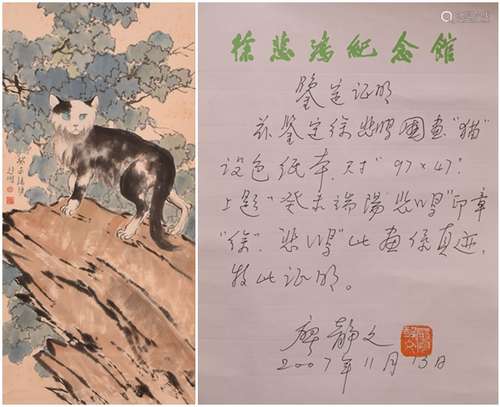 癸未端陽
悲鴻
徐悲鴻紀念館
鑒定证明
兹鉴定徐悲鸿国画"猫"
设色纸本，尺寸"97×47"
上题"癸未端陽悲鸿"印章
"徐"、"悲鸿"此画係真迹，
特此证明。
廖静文
2007年11月13日